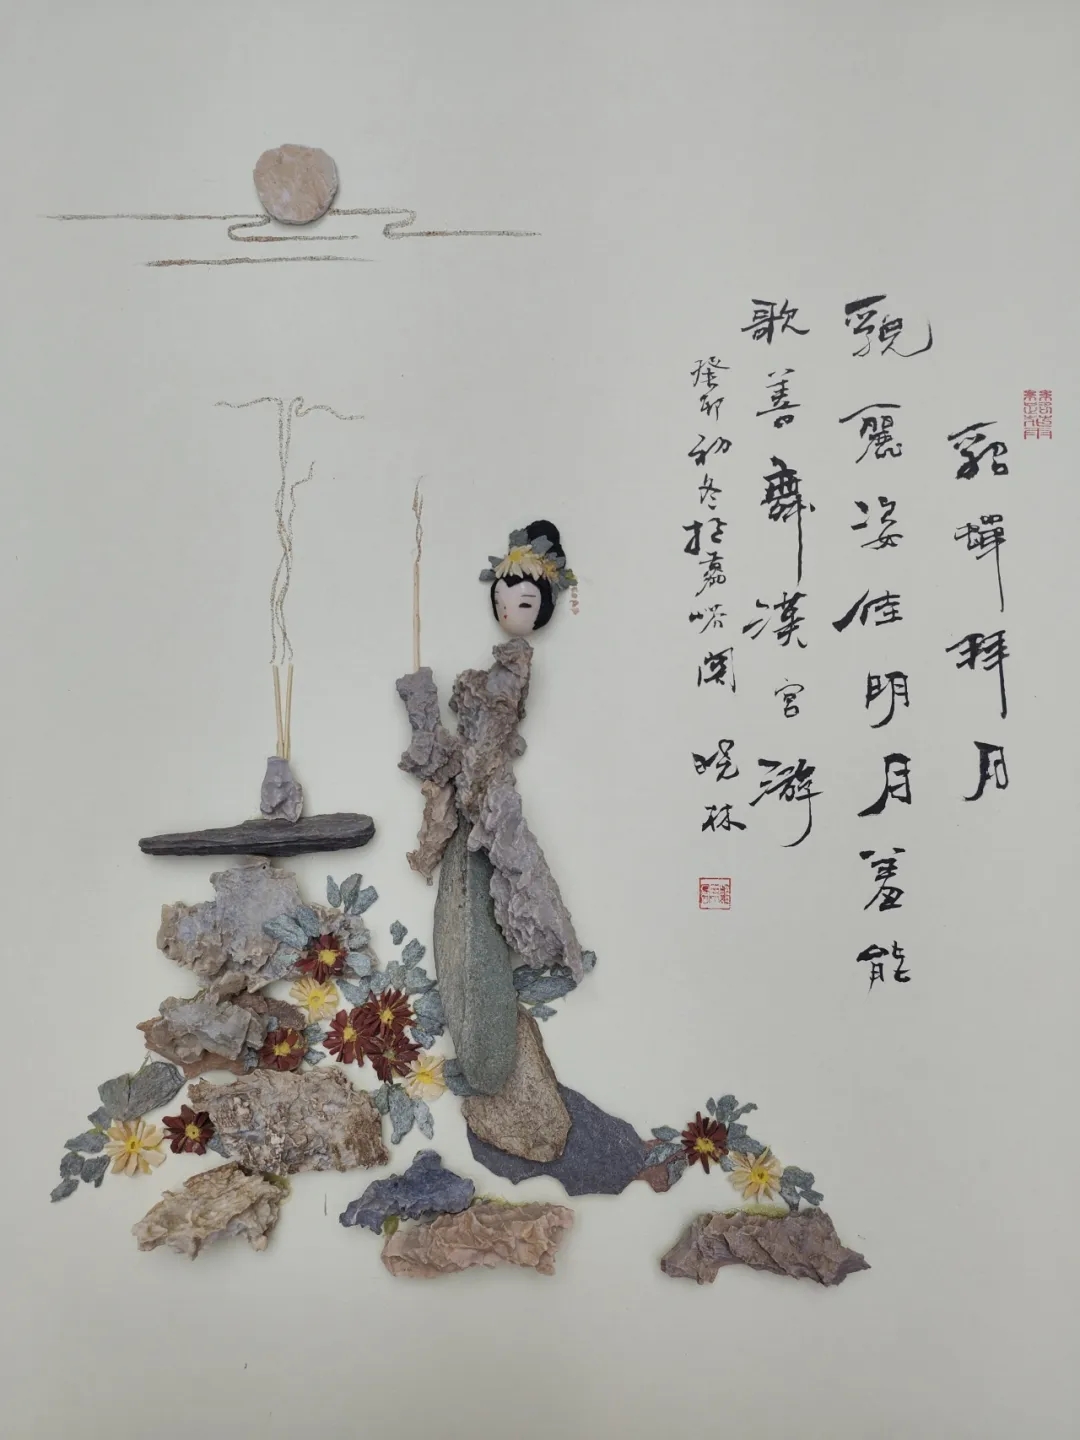 貂蟬拜月
貌麗姿佳明月羞能
歌善舞漢宮游
癸卯初冬於嘉峪関 晓林